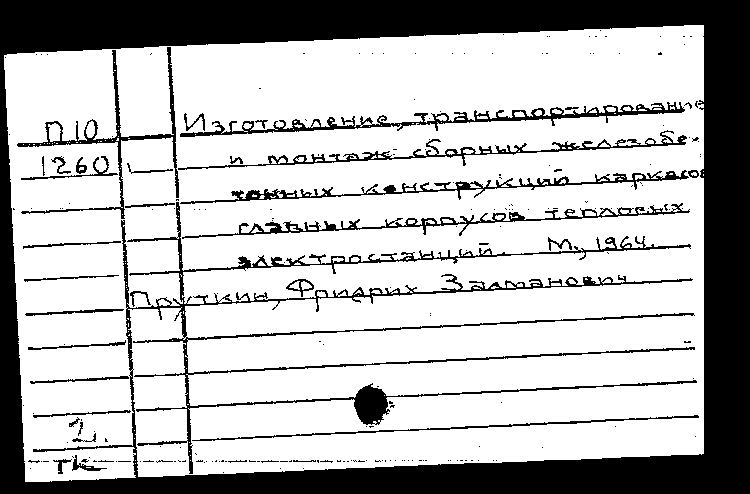 П10 Изготовление, транспортирование
1260 и монтаж сборных железобе-
тонных конструкций каркасов
главных корпусов тепловых
электростанций. М., 1964.
Пруткин, Фридрих Залманович
2.
тк